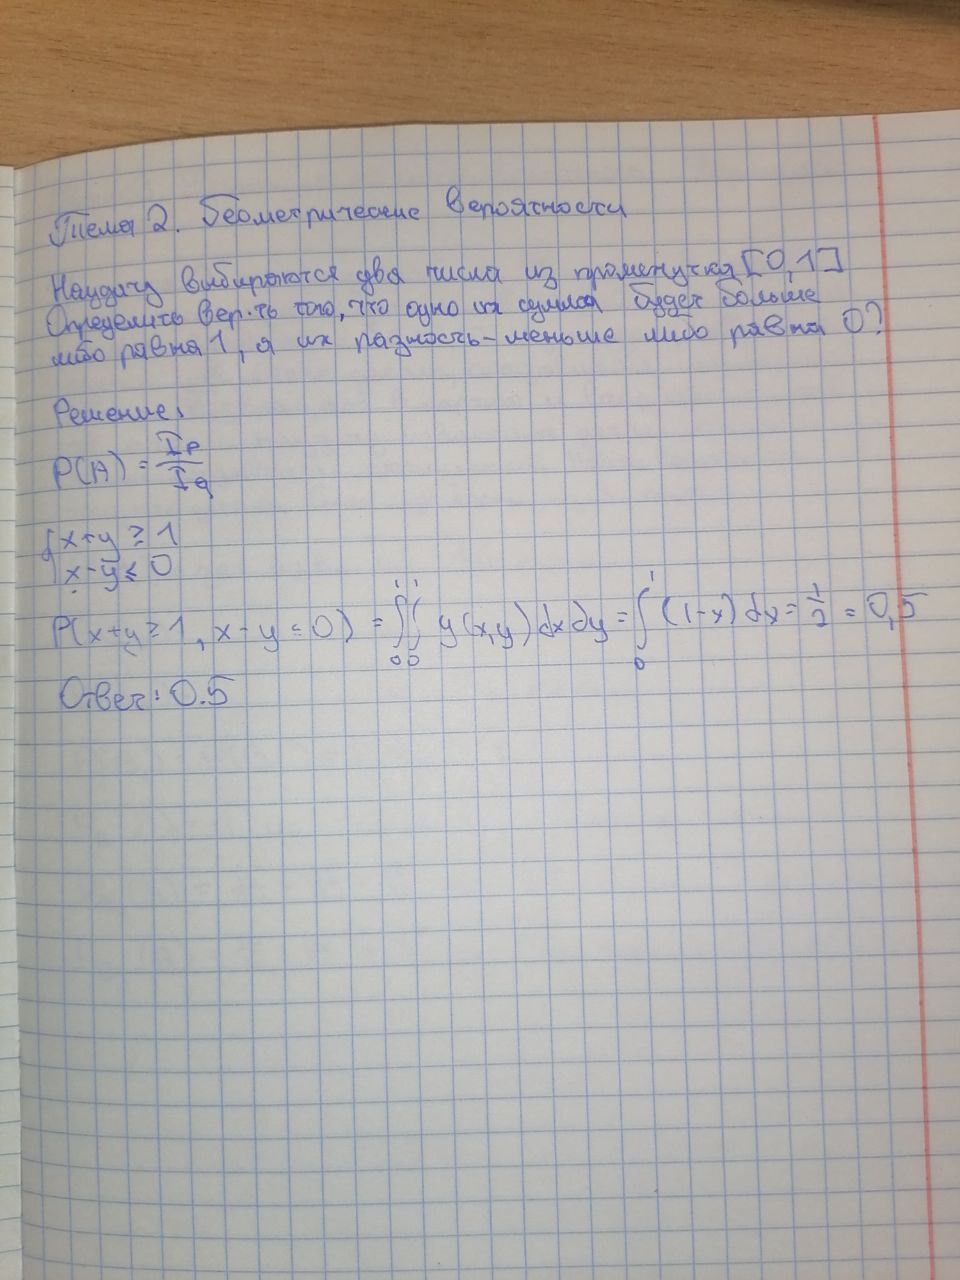 Тема 2. Геометрические вероятности
Наудачу выбираются два числа из промежутка [0,1]
Определить вер-ть того, что одно их сумма будет больше
либо равна 1, а их разность - меньше либо равна 0?
Решение:
P(A) = Ip/Iq
{x+y ≥ 1
x-y ≤ 0
P(x+y ≥ 1, x-y ≤ 0) = ∫₀¹∫₀¹ y(x,y) dxdy = ∫₀¹ (1-x) dx = 1/2 = 0,5
Ответ: 0.5